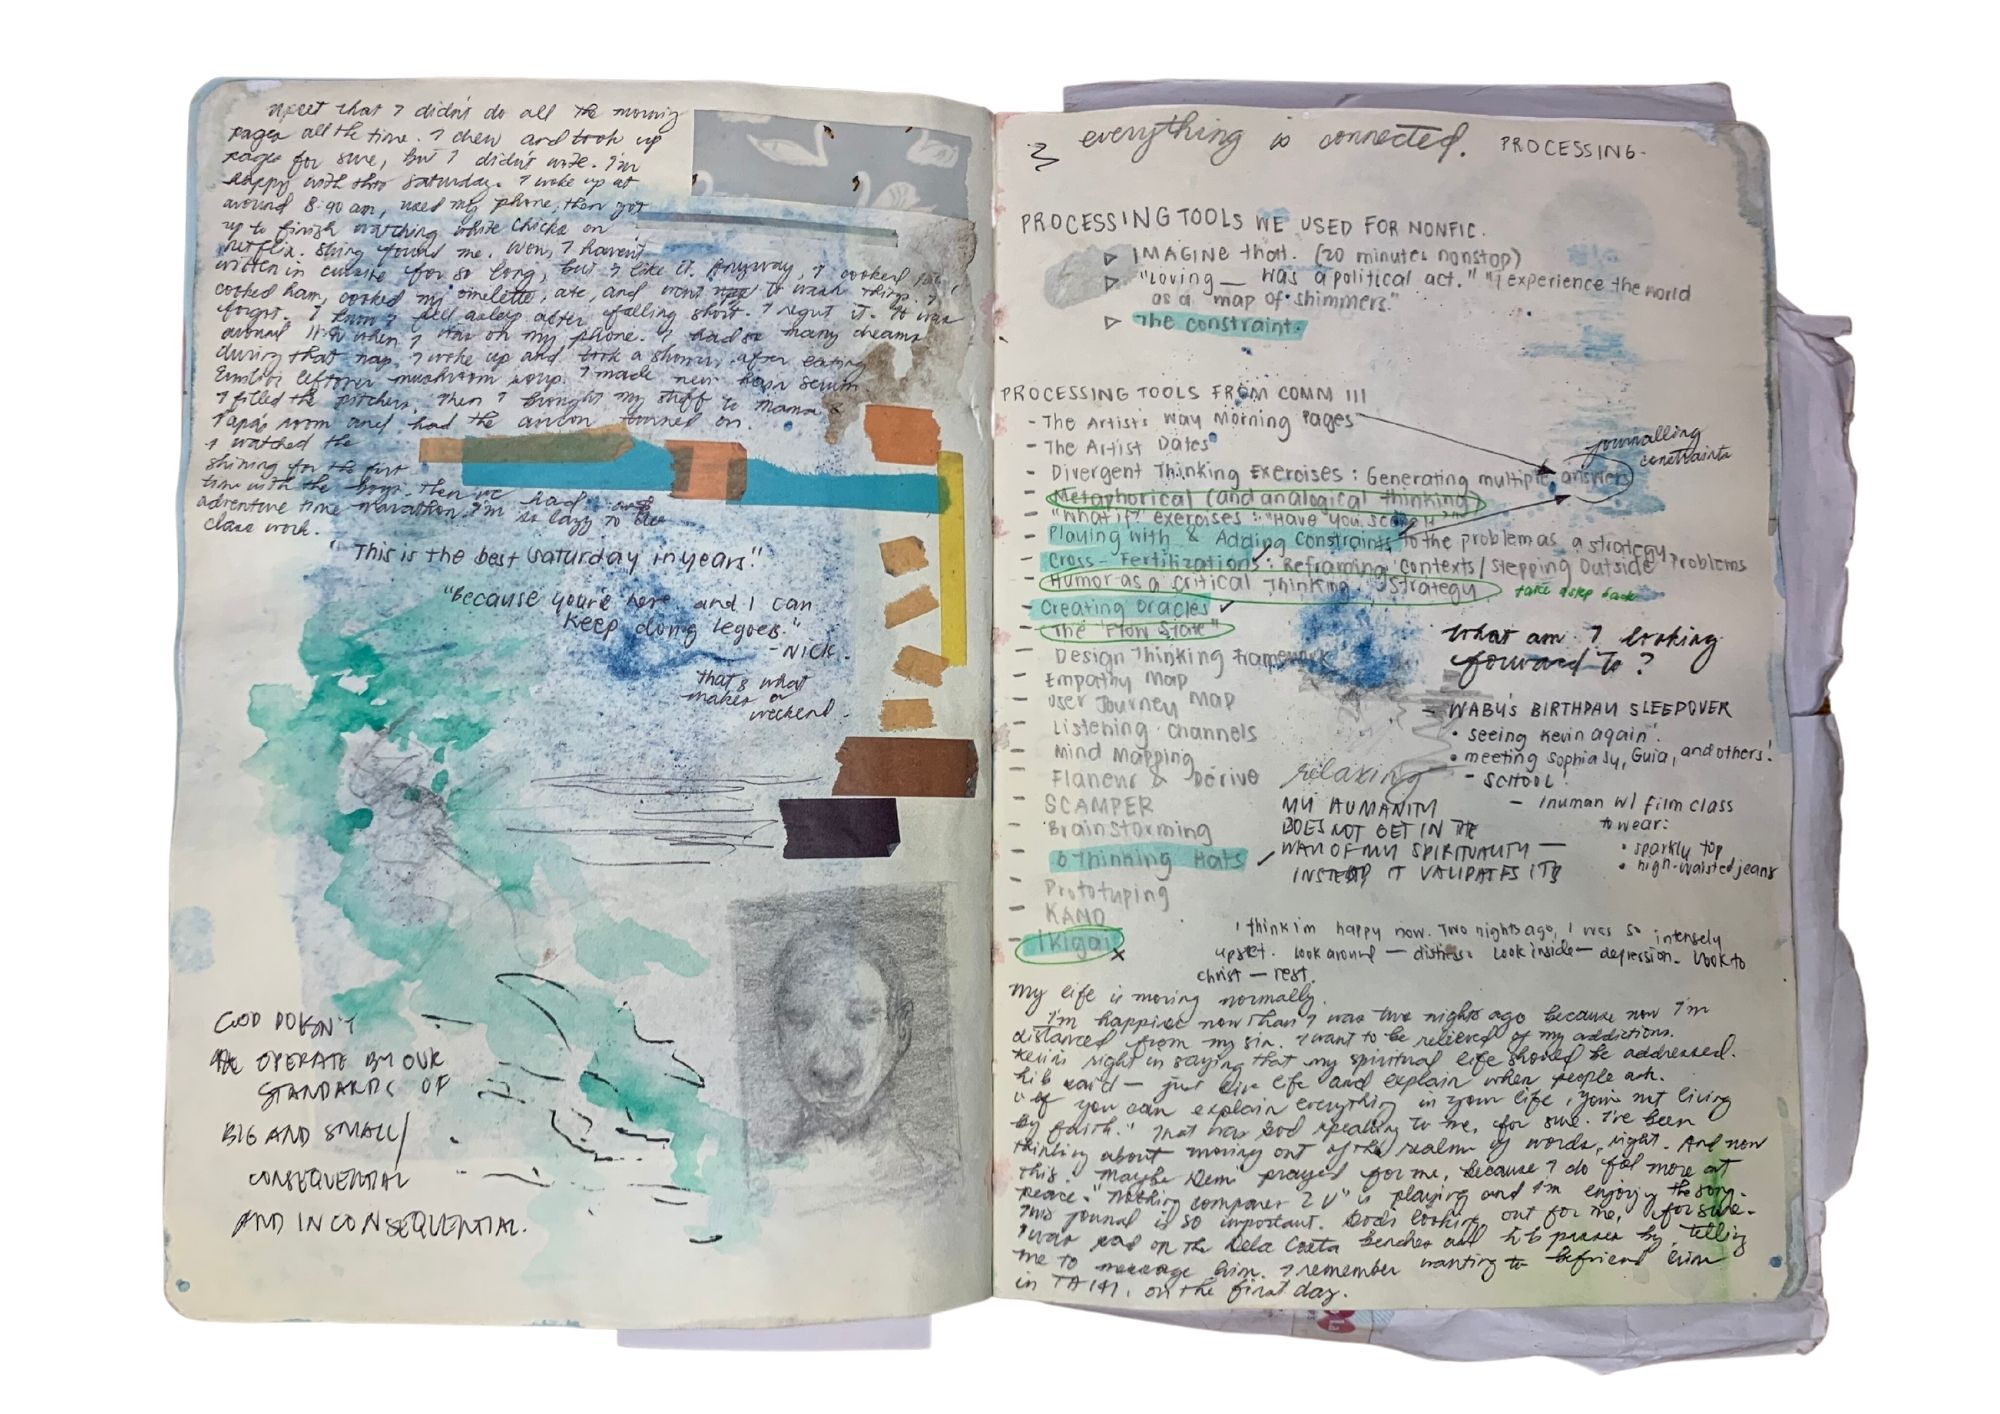 upset that I didn't do all the morning
pages all the time. I drew and took up
pages for sure, but I didn't write. I'm
happy with this Saturday. I woke up at
around 8:40 am, used my phone, then got
up to finish watching White Chicks on
netflix. found me. Wow, I haven't
written in cursive for so long, but I like it. Anyway, I cooked
cooked ham, cooked my omelette, ate, and went to wash things. I
forgot. I know I fell asleep after falling short. I regret it. It was
around when I was on my phone. I had so many dreams
during that nap. I woke up and took a shower after eating
leftover mushroom soup. I made new hair serum.
I filled the pitchers. Then I brought my stuff to Mama &
Papa's room and had the aircon turned on.
I watched the
shining for the first
time with the boys. then we had
adventure time marathon. I'm so lazy to do
class work.
"This is the best Saturday in years."
"Because you're here and I can
keep doing legoes."
- Nick.
that's what
makes a
weekend.
GOD DOESN'T
OPERATE BY OUR
STANDARDS OF
BIG AND SMALL/
CONSEQUENTIAL
AND INCONSEQUENTIAL.
everything is connected. PROCESSING-
PROCESSING TOOLS WE USED FOR NONFIC.
IMAGINE that. (20 minutes nonstop)
"Loving — was a political act." "I experience the world
as a "map of shimmers."
The constraint.
PROCESSING TOOLS FROM COMM III
- The Artist's Way Morning Pages
- The Artist Dates
journalling
constraints
- Divergent Thinking Exercises: Generating multiple answers
- Metaphorical (and analogical thinking)
- "What if" exercises: "Have you seen
- Playing with & Adding Constraints to the problem as a strategy
- Cross-Fertilizations: Reframing Contexts/Stepping Outside Problems
- Humor as a Critical Thinking Strategy take a step back
- Creating Oracles ✓
- The "Flow State"
- Design Thinking Framework
- Empathy Map
- User Journey Map
- Listening Channels
- Mind Mapping
- Flaneur & Derive
- SCAMPER
- Brainstorming
- 6 Thinking Hats ✓
- Prototyping
- KANO
- Ikigai x
What am I looking
forward to?
- WABY'S BIRTHDAY SLEEPOVER
• seeing Kevin again.
• meeting Sophia Sy, Guia, and others!
- SCHOOL!
- Inuman w/ film class
to wear:
• sparkly top
• high-waisted jeans
relaxing
MY HUMANITY
DOES NOT GET IN THE
WAY OF MY SPIRITUALITY —
INSTEAD IT VALIDATES IT
I think im happy now. Two nights ago, I was so intensely
upset. Look around — distress. Look inside — depression. Look to
christ — rest.
My life is moving normally.
I'm happier now than I was two nights ago because now I'm
distanced from my sin. I want to be relieved of my addictions.
Kevin's right in saying that my spiritual life should be addressed.
said — just live life and explain when people ask.
"If you can explain everything in your life, you're not living
by faith." That was God speaking to me, for sure. I've been
thinking about moving out of the realm of words, right. And now
this. Maybe Demi prayed for me, because I do feel more at
peace. "Nothing compares 2 U" is playing and I'm enjoying the song.
This journal is so important. God's looking out for me, for sure.
I was sad on the Dela Costa benches and passes by, telling
me to message him. I remember wanting to befriend him
in TA 141, on the first day.